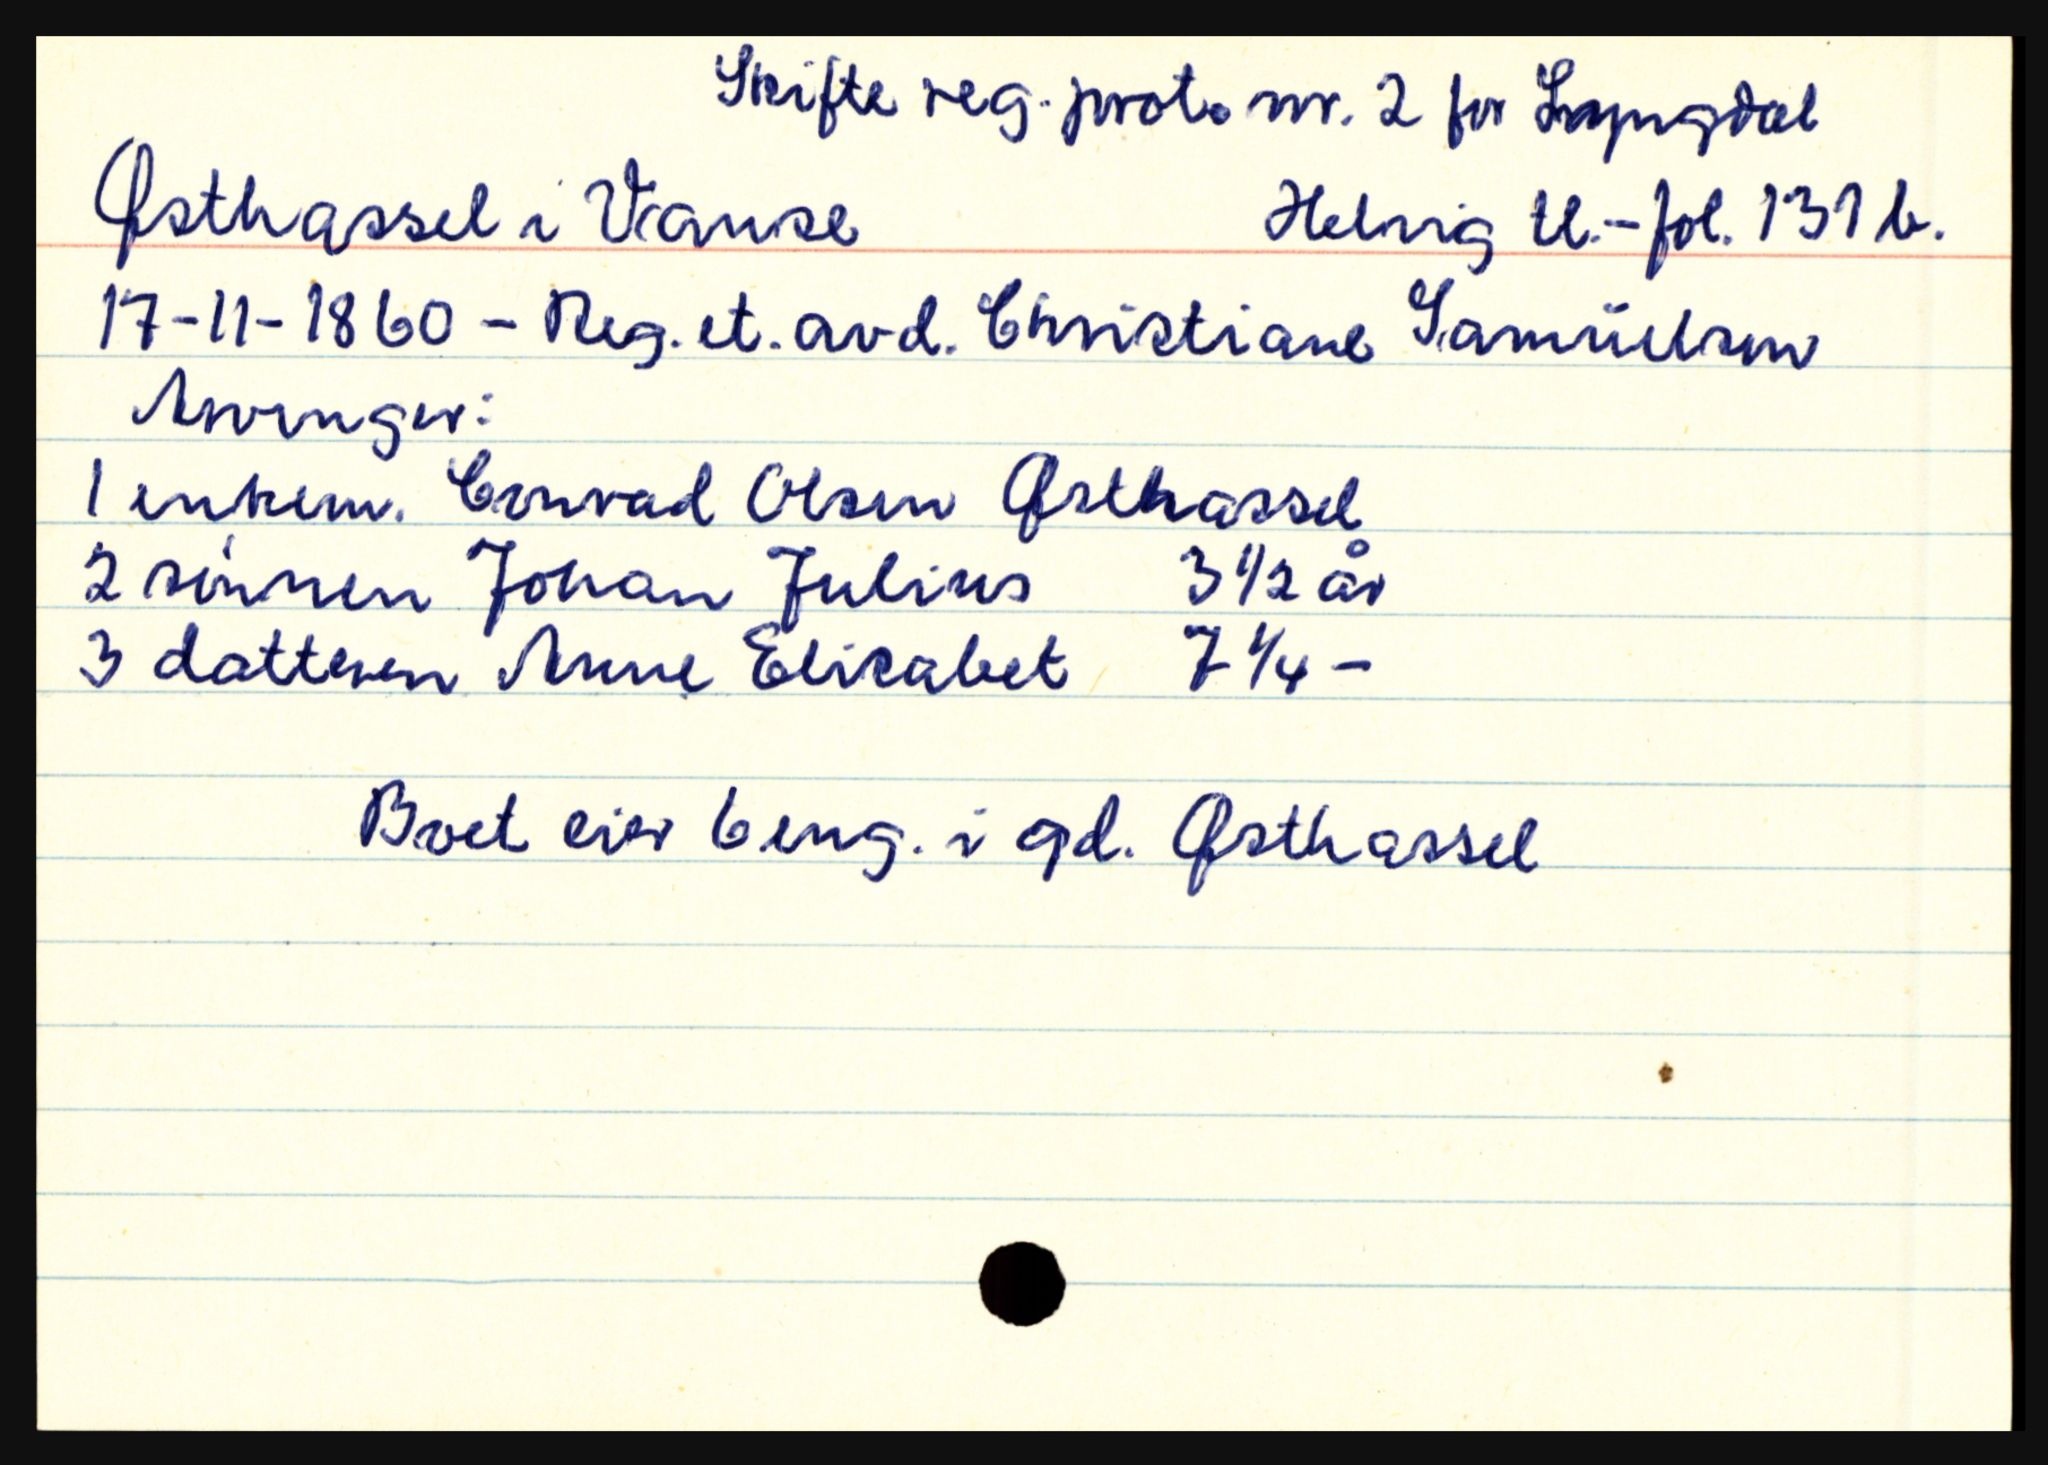 Skifte reg. prot. nr. 2 for Lyngdal
Østhassel i Vanse Helvig tl. - fol. 131 b.
17-11-1860 - Reg. et. avd. Christiane Samüelsen
Arvinger:
1 enkem. Conrad Olsen Østhassel
2 sønnen Johan Julius 3 1/2 år
3 datteren Anne Elisabet 7 1/4 -
Boet eier 6 eng. i gd. Østhassel